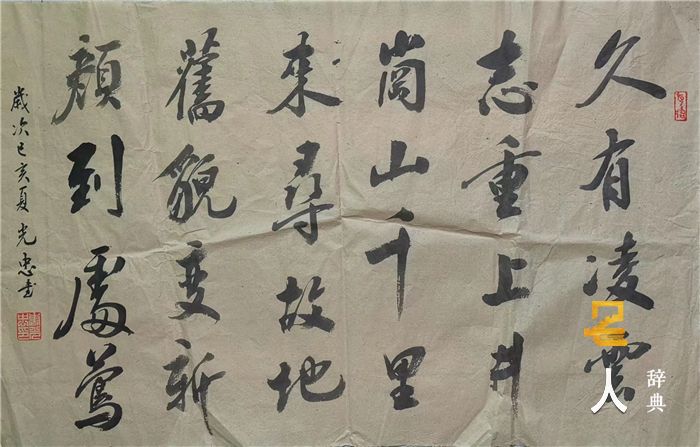 久有凌雲
志重上井
崗山千里
來尋故地
舊貌變新
顏到處鶯
歲次己亥夏光忠書
名人辞典